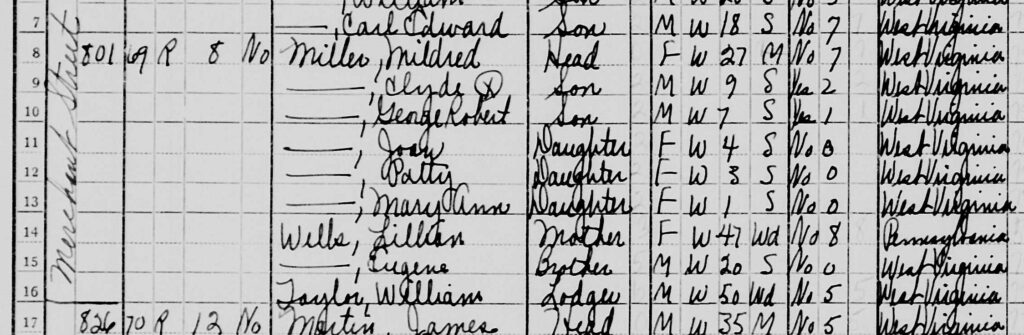 William Son
7 ——, Carl Edward Son M W 18 S No 7 West Virginia
8 801 69 R 8 No Miller, Mildred Head F W 27 M No 7 West Virginia
9 ——, Clyde ⓧ Son M W 9 S Yes 2 West Virginia
10 ——, George Robert Son M W 7 S Yes 1 West Virginia
11 ——, Joan Daughter F W 4 S No 0 West Virginia
12 ——, Patty Daughter F W 3 S No 0 West Virginia
13 ——, Mary Ann Daughter F W 1 S No 0 West Virginia
14 Wells, Lillian Mother F W 47 Wd No 8 Pennsylvania
15 ——, Eugene Brother M W 20 S No 0 West Virginia
16 Taylor, William Lodger M W 50 Wd No 5 West Virginia
17 826 70 R 12 No Martin, James Head M W 35 M No 5 West Virginia
Merchant Street